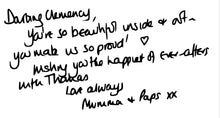 Darling Clemency,
You're so beautiful inside & out -
you make us so proud! ♡
Wishing you the happiest of ever-afters
with Thomas
Love always
Mumma & Paps xx